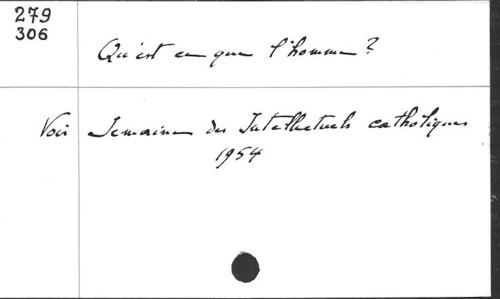 279
306
Qu'est ce que l'homme ?
Voir Semaine des Intellectuels catholiques
1954